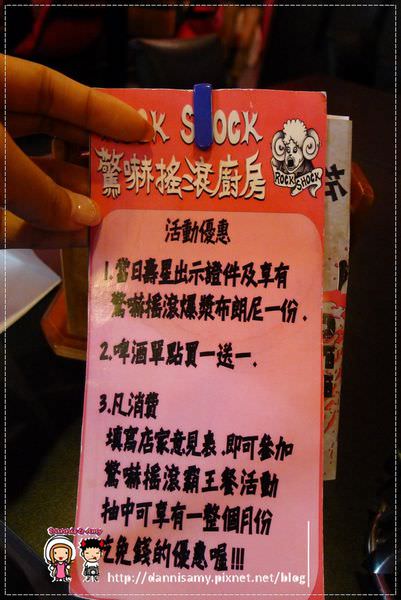 ROCK SHOCK
驚嚇搖滾廚房
ROCK SHOCK
活動優惠
1.當日壽星出示證件及享有
驚嚇搖滾爆漿布朗尼一份.
2.啤酒單點買一送一.
3.凡消費
填寫店家意見表.即可參加
驚嚇搖滾霸王餐活動
抽中可享有一整個月份
吃免錢的優惠喔!!!
http://dannisamy.pixnet.net/blog